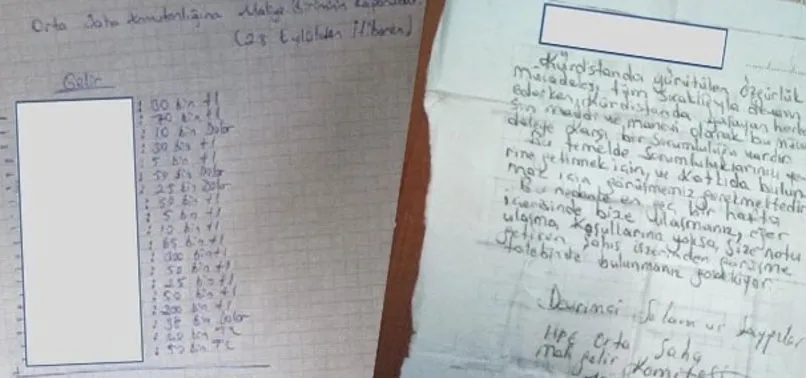 Orta Saha Komutanlığına Maliye
(28 Eylülden İtibaren)
Gelir
: 30 bin tl
: 70 bin tl
: 10 bin Dolar
: 30 bin tl
: 5 bin tl
: 50 bin Dolar
: 25 bin Dolar
: 50 bin tl
: 5 bin tl
: 10 bin tl
: 65 bin tl
: 300 bin tl
: 50 bin tl
: 25 bin tl
: 50 bin tl
: 200 bin tl
: bin Dolar
: bin TL
: 50 bin TL
Kürdistanda yürütülen özgürlük
mücadelesi, tüm sıcaklığıyla devam
ederken, Kürdistanda yaşayan herke
sin maddi ve manevi olarak bu müca
deleye karşı bir sorumluluğu vardır.
Bu temelde sorumluluklarınızı ye
rine getirmek için, ve katkıda bulun
mak için görüşmemiz gerekmektedir.
Bu nedenle en geç bir hafta
içerisinde bize ulaşmanız, eğer
ulaşma koşullarınız yoksa, size notu
getiren şahıs üzerinden görüşme
talebinde bulunmanız gerekiyor.
Devrimci Selam ve Saygılar
HPG Orta Saha
Mali gelir Komitesi